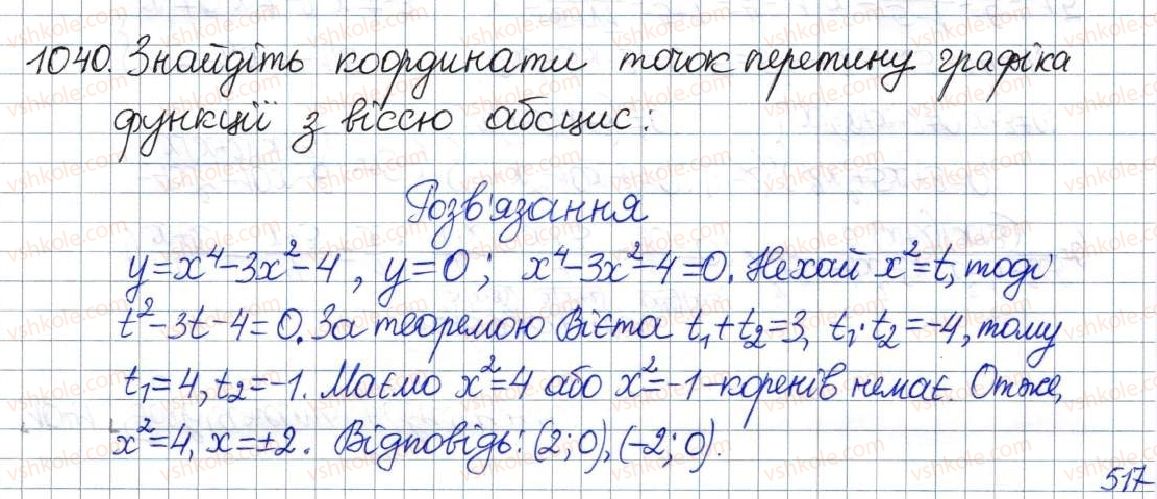 1040. Знайдіть координати точок перетину графіка
функції з віссю абсцис:
Розв'язання
y=x⁴-3x²-4, y=0; x⁴-3x²-4=0. Нехай x²=t, тоді
t²-3t-4=0. За теоремою Вієта t₁+t₂=3, t₁·t₂=-4, тому
t₁=4, t₂=-1. Маємо x²=4 або x²=-1-коренів немає. Отже,
x²=4, x=±2. Відповідь: (2;0), (-2;0).
517